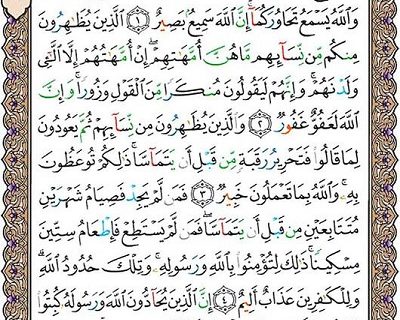 وَاللَّهُ يَسْمَعُ تَحَاوُرَكُمَا ۚ إِنَّ اللَّهَ سَمِيعٌ بَصِيرٌ ١ الَّذِينَ يُظَاهِرُونَ
مِنكُم مِّن نِّسَائِهِم مَّا هُنَّ أُمَّهَاتِهِمْ ۖ إِنْ أُمَّهَاتُهُمْ إِلَّا اللَّائِي
وَلَدْنَهُمْ ۚ وَإِنَّهُمْ لَيَقُولُونَ مُنكَرًا مِّنَ الْقَوْلِ وَزُورًا ۚ وَإِنَّ
اللَّهَ لَعَفُوٌّ غَفُورٌ ٢ وَالَّذِينَ يُظَاهِرُونَ مِن نِّسَائِهِمْ ثُمَّ يَعُودُونَ
لِمَا قَالُوا فَتَحْرِيرُ رَقَبَةٍ مِّن قَبْلِ أَن يَتَمَاسَّا ۚ ذَٰلِكُمْ تُوعَظُونَ
بِهِ ۚ وَاللَّهُ بِمَا تَعْمَلُونَ خَبِيرٌ ٣ فَمَن لَّمْ يَجِدْ فَصِيَامُ شَهْرَيْنِ
مُتَتَابِعَيْنِ مِن قَبْلِ أَن يَتَمَاسَّا ۖ فَمَن لَّمْ يَسْتَطِعْ فَإِطْعَامُ سِتِّينَ
مِسْكِينًا ۚ ذَٰلِكَ لِتُؤْمِنُوا بِاللَّهِ وَرَسُولِهِ ۚ وَتِلْكَ حُدُودُ اللَّهِ ۗ
وَلِلْكَافِرِينَ عَذَابٌ أَلِيمٌ ٤ إِنَّ الَّذِينَ يُحَادُّونَ اللَّهَ وَرَسُولَهُ كُبِتُوا